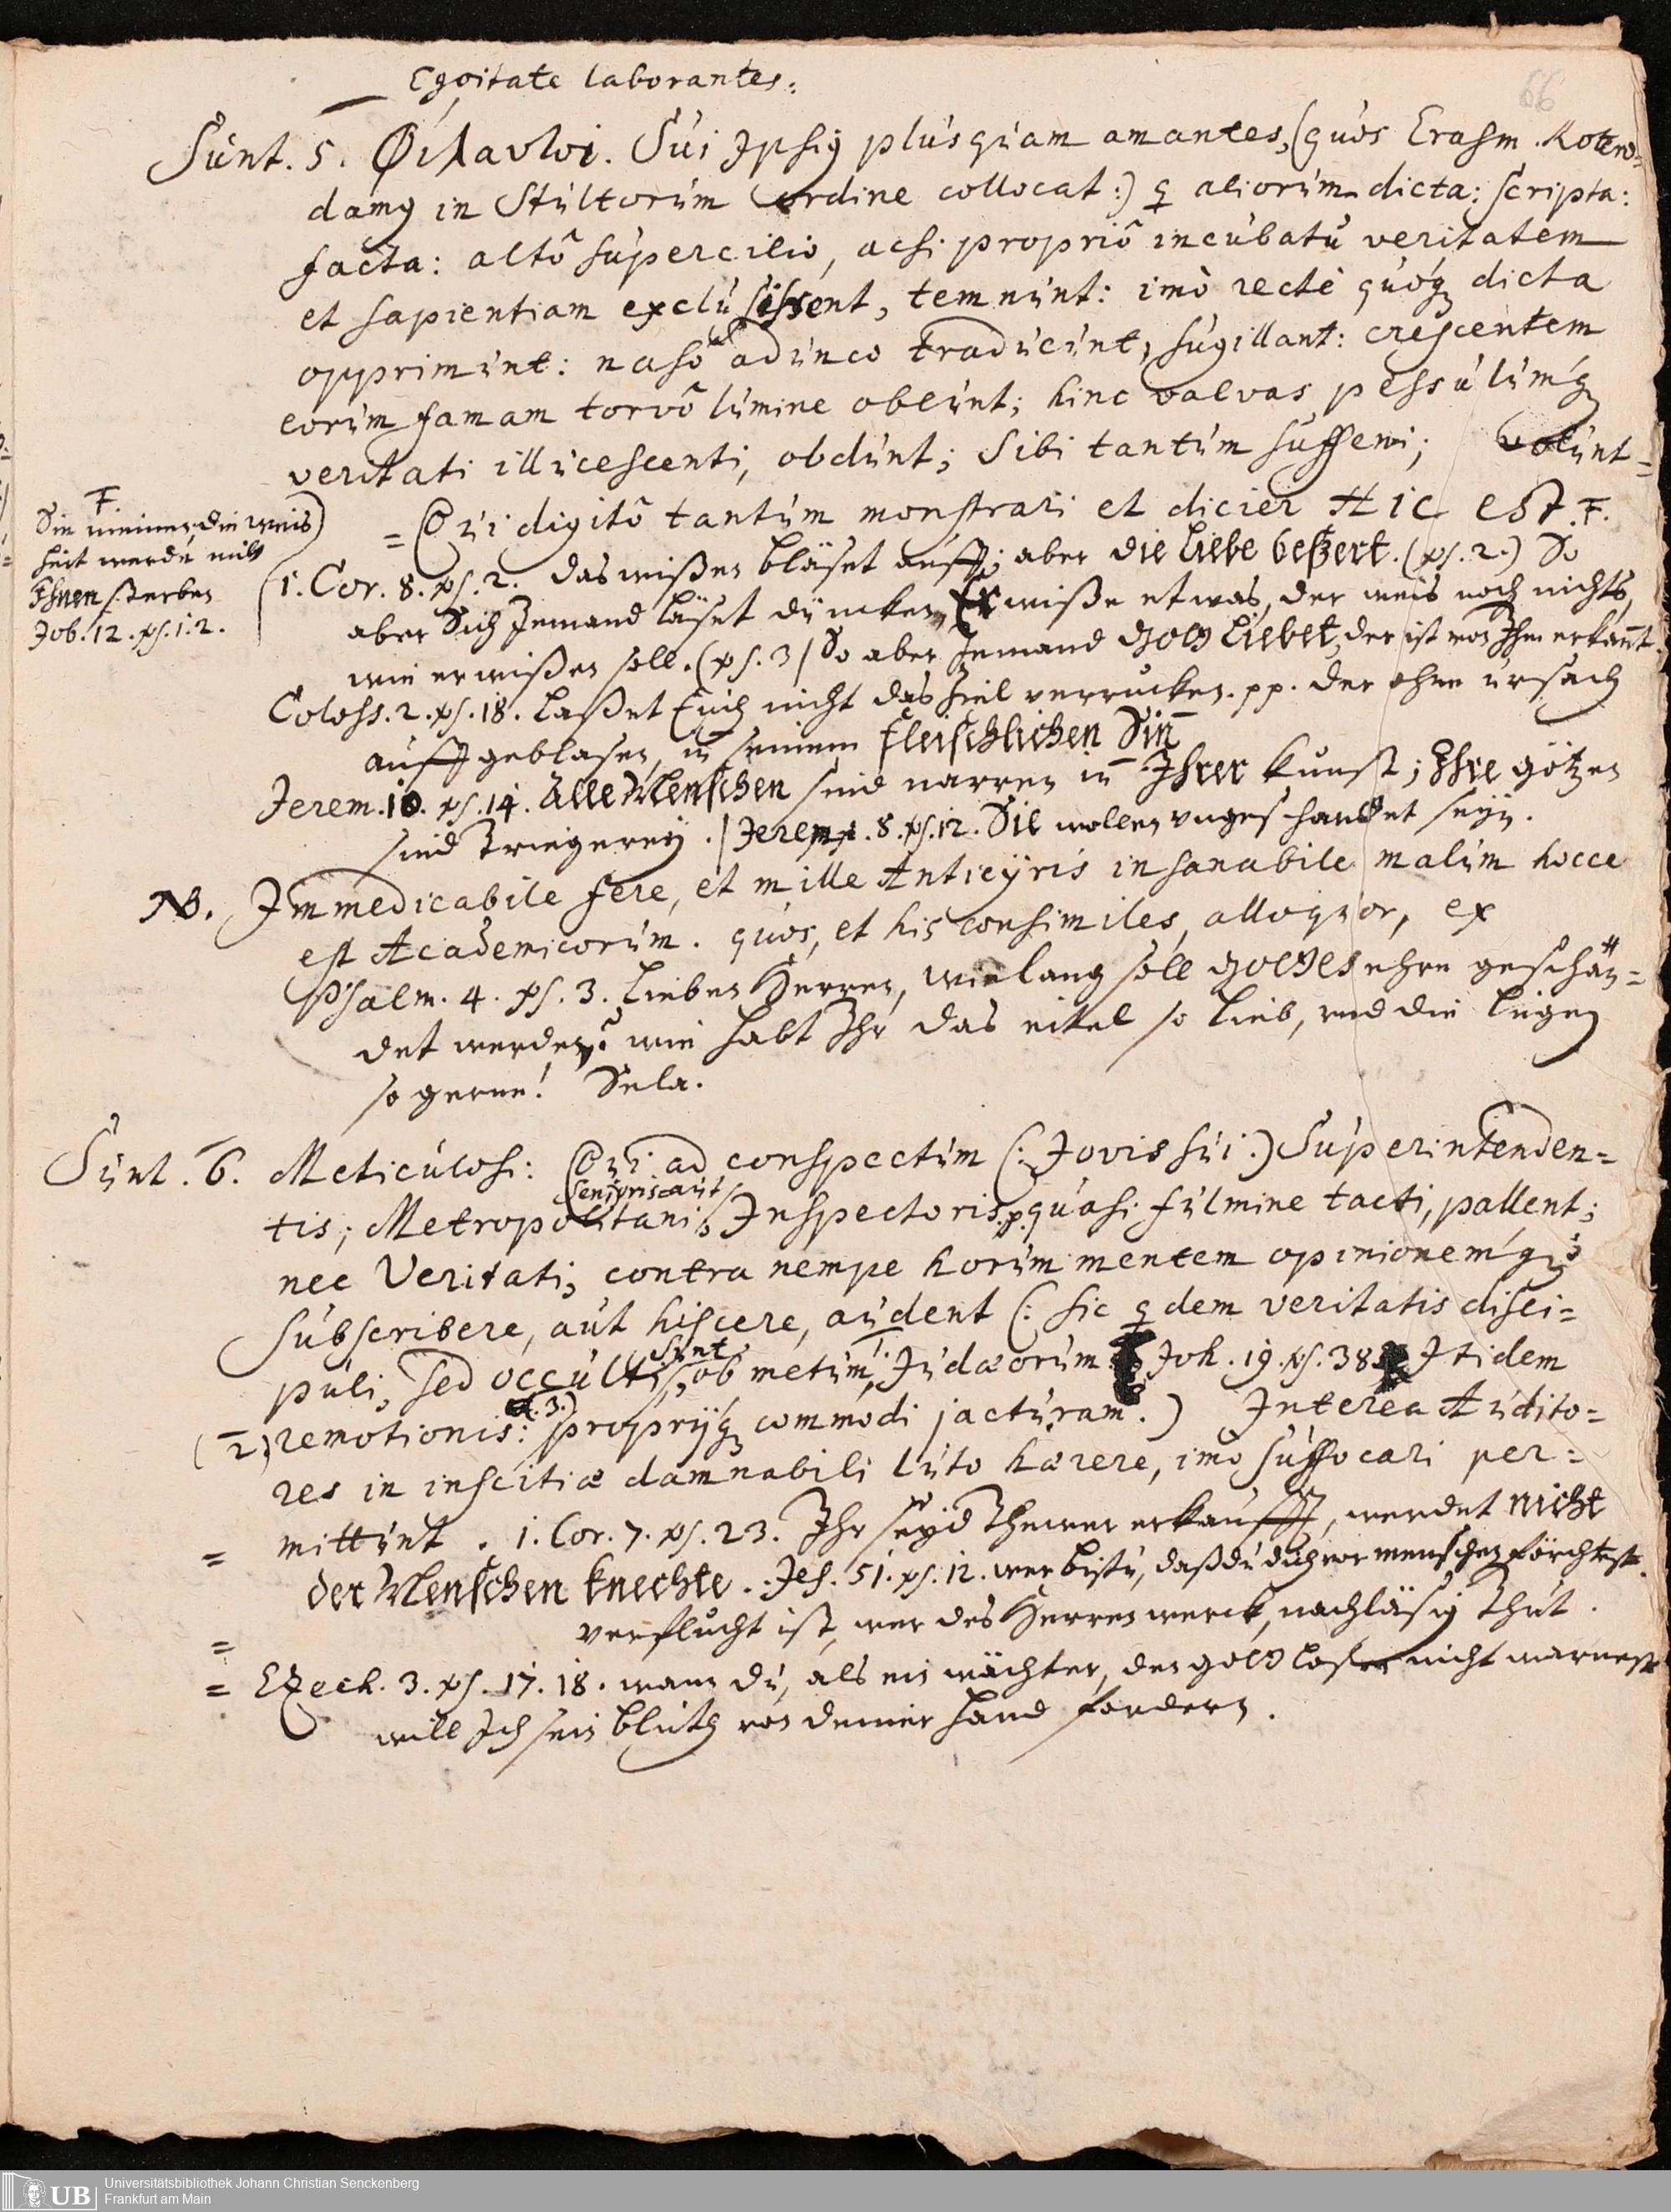 Egoitate laborantes:
66
Sunt. 5. Φίλαυλοι. Sui Ipsiꝰ plusquam amantes, (quos Erasm. Rotero=
damꝰ in Stultorum ordine collocat:) q aliorum dicta: scripta:
facta: altô supercilio, acsi propriô incubatu veritatem
et sapientiam exclusissent, temnunt: imò rectè quóqꝫ dicta
opprimunt: nasô adunco traducunt, sugillant: crescentem
eorum famam torvô lumine obeunt; hinc valvas pessulúmqꝫ
veritati illucescenti, obdunt; Sibi tantum suffeni; volunt=
= Qui digitô tantum monstrari et dicier Hic est. F.
F
Sie meinen, die weis)
heit werde mitt
Ihnen sterben
Job. 12. ps. 1. 2.
(1. Cor. 8. ps. 2. das wißen bläset auff; aber die Liebe beßert. (ps. 2.) So
aber Sich Jemand läset düncken, Er wiße etwas, der weis noch nichts,
wie er wißen soll. (ps. 3/ So aber Jemand Gott Liebet, der ist von Ihm erkañt.
Coloss. 2. ps. 18. laßet Euch nicht das Ziel verrucken. pp. der ohne ursach
auffgeblasen, in seinem fleischlichen Siñ
Jerem. 10. ps. 14. Alle Menschen sind narren in Ihrer kunst; Ihre götzen
sind Triegerey. / Jerem. 8. ps. 12. Sie wollen ungeschandet seyn.
NB. Immedicabile fere, et mille Anticyris insanabile malum hocce
est Academicorum. quos, et his consimiles, alloquor, ex
Psalm. 4. ps. 3. Lieben Herren, wie lang soll Gottes ehre geschän=
det werden? wie habt Ihr das eitel so lieb, und die lügen
so gerne! Sela.
Sunt. 6. Meticulosi: Qui ad conspectum (: Jovis sui :) Superintenden=
Senioris aut
tis; Metropolitani, Inspectoris. p. quasi fulmine tacti, pallent;
nec Veritati, contra nempe horum mentem opinionemqꝫ
subscribere, aut hiscere, audent (: sic qdem veritatis disci=
sunt
puli, sed occulti, ob metum, 1. Judæorum Joh. 19. ps. 38. Itidem
(2) remotionis: et. 3.) propryqꝫ commodi jacturam.) Interea Audito=
res in inscitiæ damnabili luto hærere, imo suffocari per=
= mittunt. 1. Cor. 7. ps. 23. Ihr seyd Thewer erkaufft, werdet nicht
der Menschen knechte. Jes. 51. ps. 12. wer bistu, daß du dich vor menschen förchtest.
= verflucht ist, wer des Herren werck, nachläsig Thut.
= Ezech. 3. ps. 17. 18. wann du, als ein wächter, den gottlosen nicht warnest
will Ich sein bluth von deiner Hand fordern.
UB Universitätsbibliothek Johann Christian Senckenberg
Frankfurt am Main